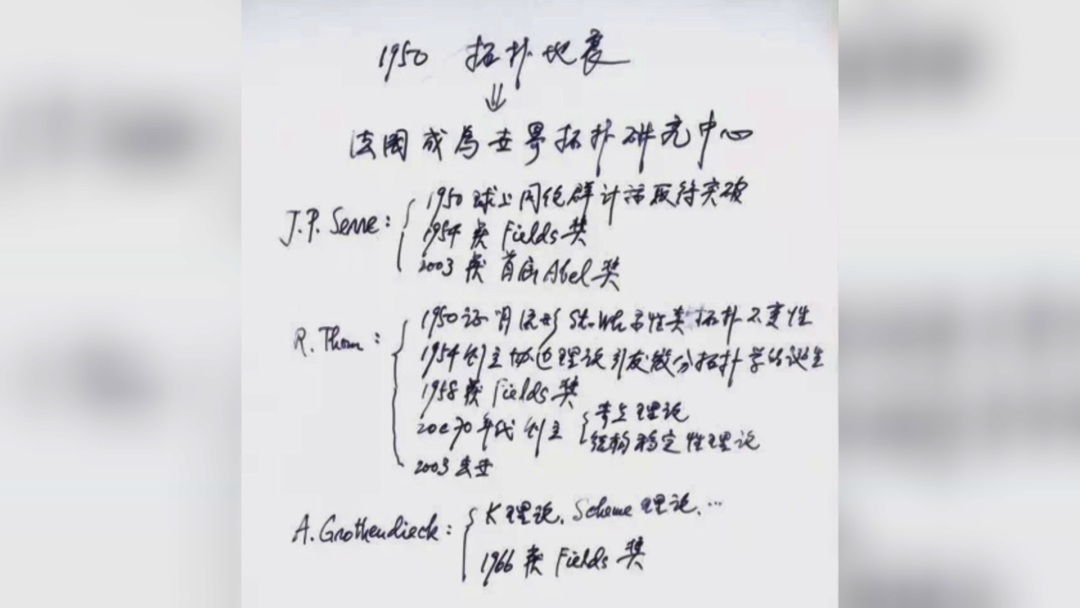 1950 拓扑地震
⇓
法国成为世界拓扑研究中心
J.P. Serre: 1950 球上同伦群计算取得突破
1954 获 Fields 奖
2003 获 首届 Abel 奖
R. Thom: 1950 证明流形 St.Wh 示性类拓扑不变性
1954 创立协边理论引发微分拓扑学的诞生
1958 获 Fields 奖
20c70年代创立 奇点理论
结构稳定性理论
2003 去世
A. Grothendieck: K理论, Scheme 理论, …
1966 获 Fields 奖